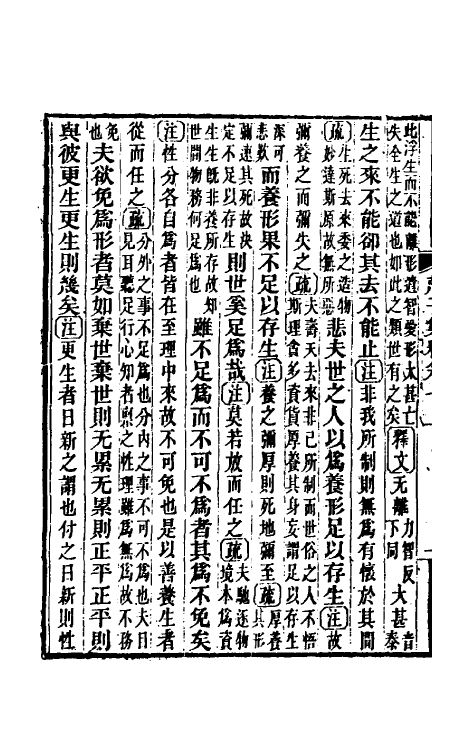 此浮生而不能離形遺智愛形太甚亡
失全生之道也如此之類世有之矣釋文无離力智反大甚音泰
下同
生之來不能卻其去不能止注非我所制則無爲有懷於其間
疏生死去來委之造物
妙達斯原故無所惡悲夫世之人以爲養形足以存生注故
彌養之而彌失之疏夫壽夭去來非己所制而世俗之人不悟
斯理貪多資貨厚養其身妄謂足以存生
深可
悲歎而養形果不足以存生注養之彌厚則死地彌至疏厚養
其形
彌速其死故決
定不足以存生則世奚足爲哉注莫若放而任之疏夫馳逐物
境本爲資
生生旣非養所存故知
世間物務何足爲也雖不足爲而不可不爲者其爲不免矣
注性分各自爲者皆在至理中來故不可免也是以善養生者
從而任之疏分外之事不足爲也分内之事不可不爲也夫目
見耳聽足行心知者稟之性理雖爲無爲故不務
免
也夫欲免爲形者莫如棄世棄世則无累无累則正平正平則
與彼更生更生則幾矣注更生者日新之謂也付之日新則性